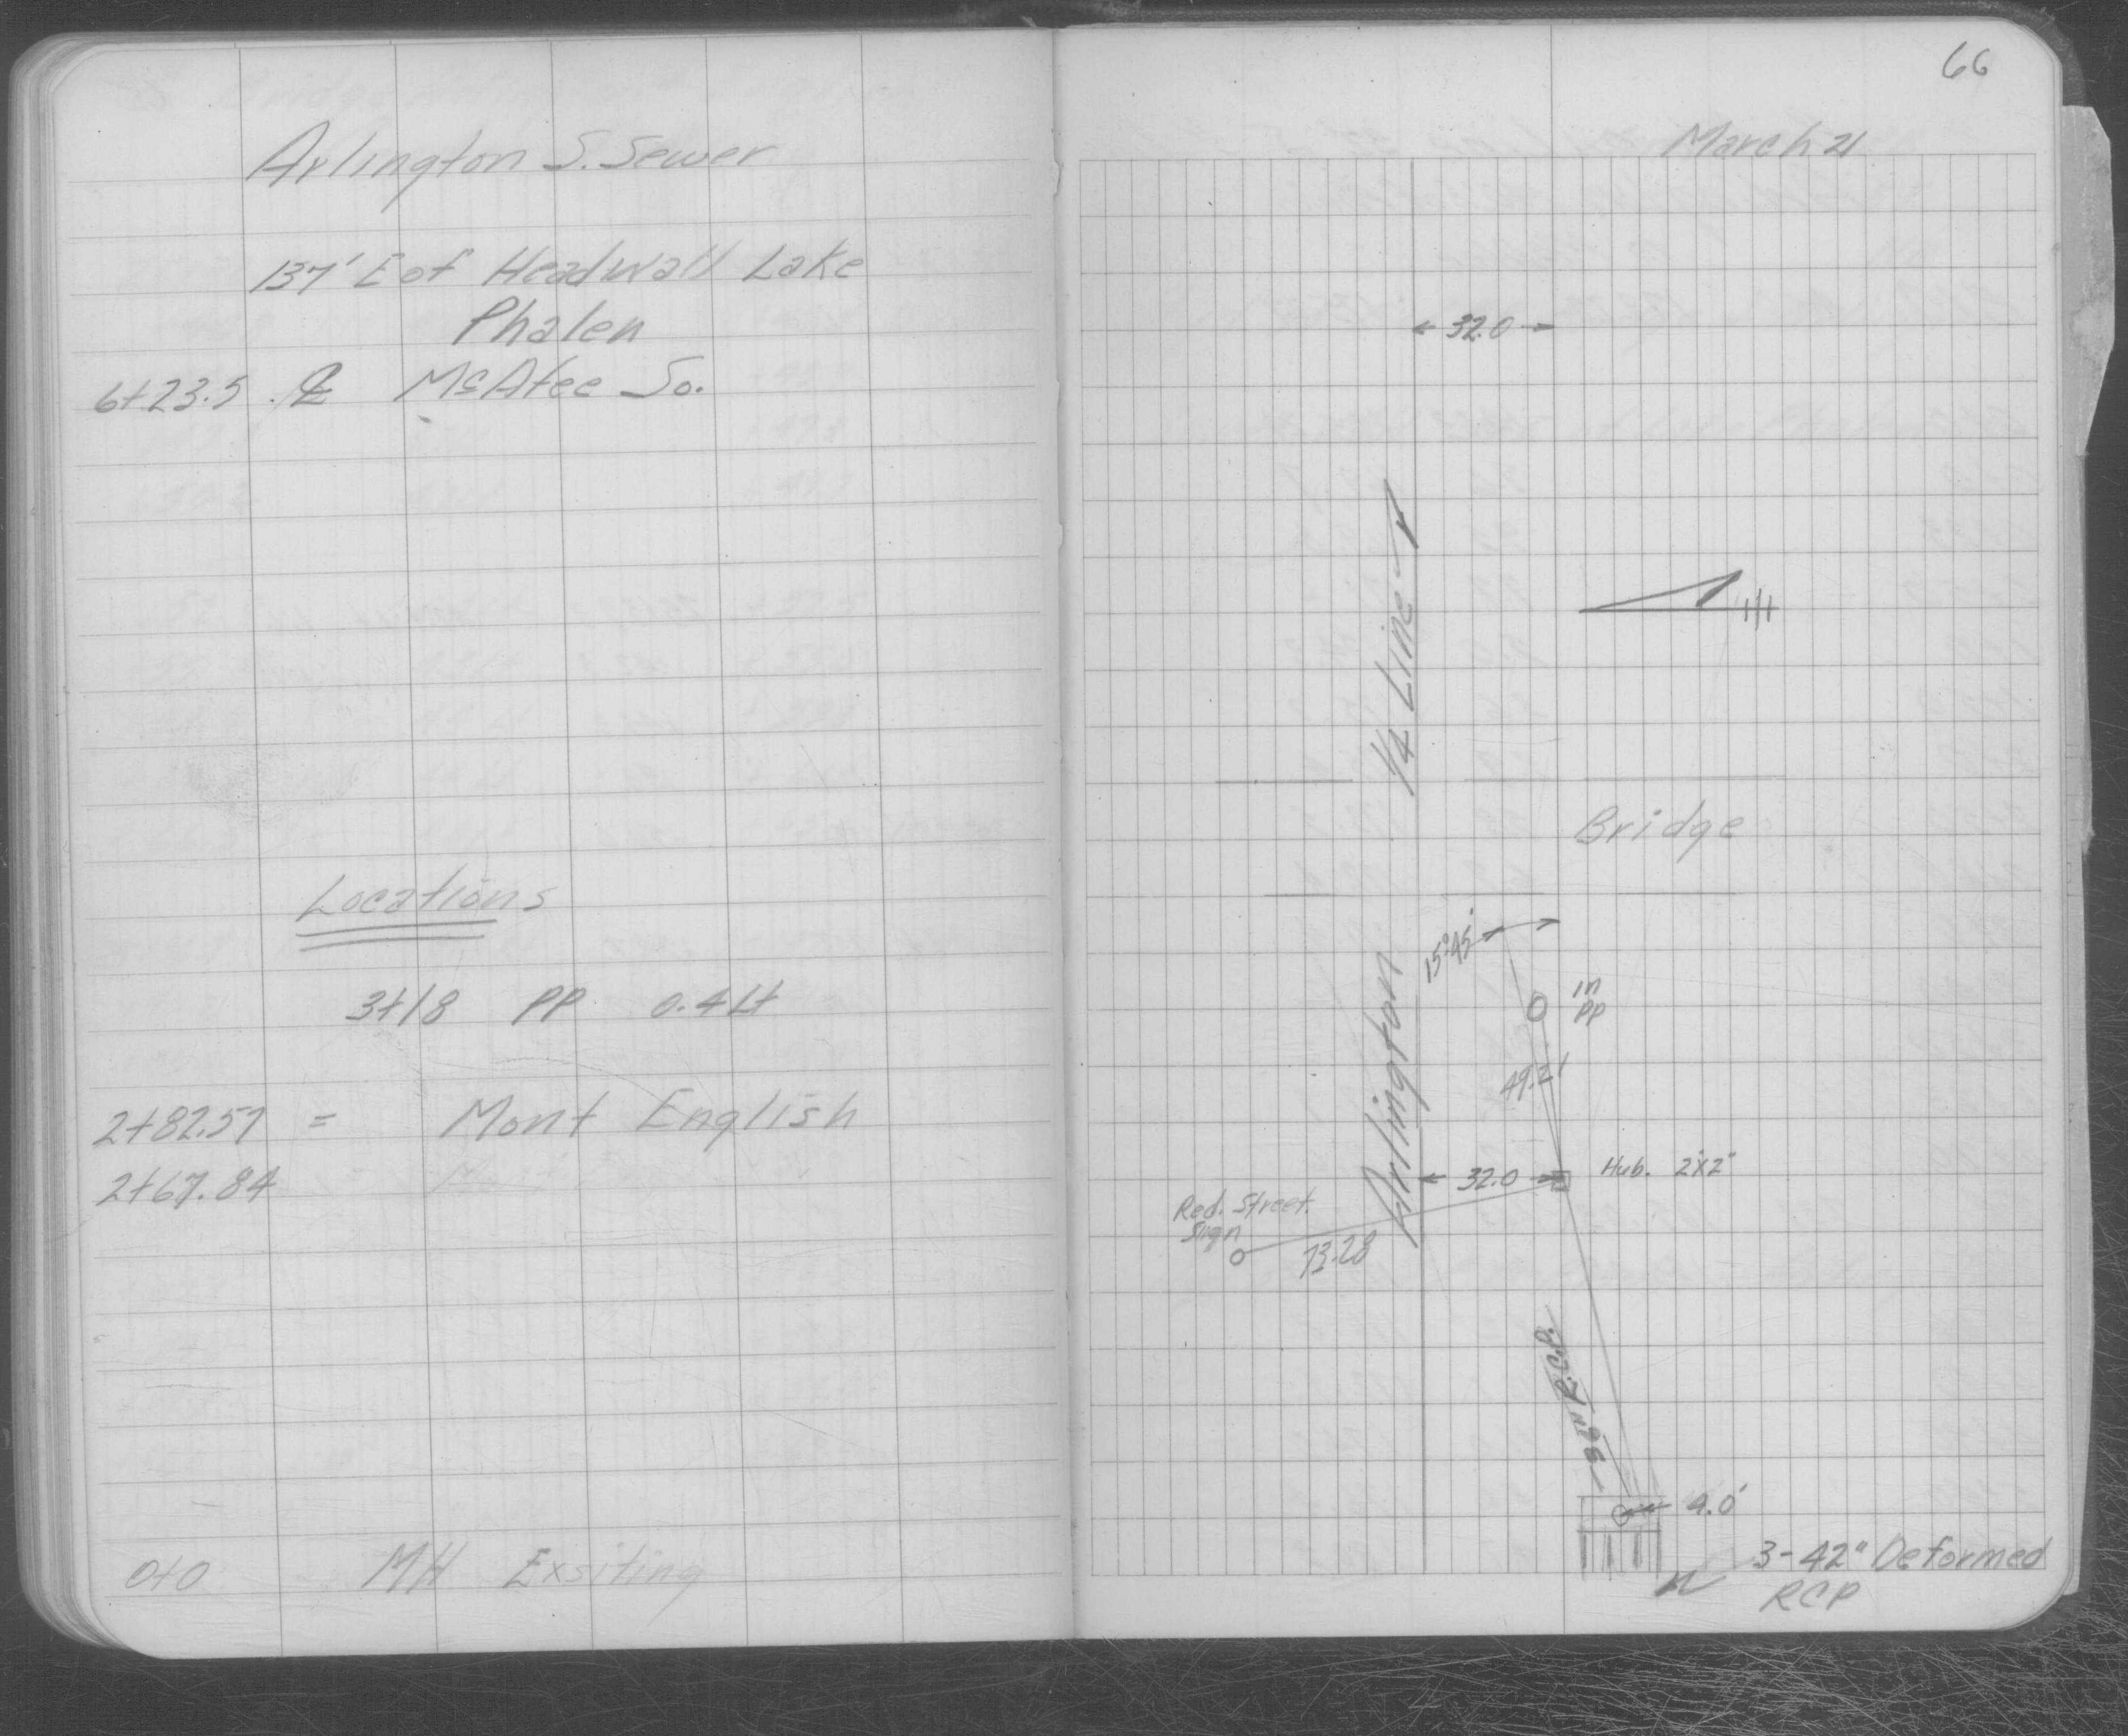 Arlington S. Sewer
137' E of Headwall Lake
Phalen
6+23.5 ℄ McAfee So.
Locations
3+18 PP 0.4 Lt
2+82.57 = Mont English
2+67.84
0+0 MH Exsiting
66
March 21
← 32.0 →
1/4 Line
Bridge
15°45'
in
PP
49.21
Arlington
← 32.0 →
Hub. 2"x2"
Red. Street.
Sign
73.28
36" R.C.P.
4.0'
3-42" Deformed
RCP